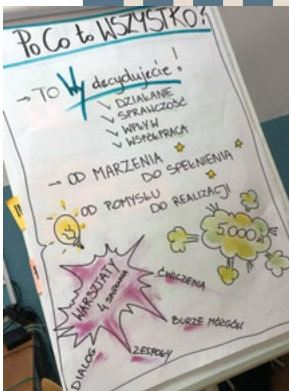 Po Co to WSZYSTKO?
→ TO Wy decydujecie!
↘ DZIAŁANIE
↘ SPRAWCZOŚĆ
↘ WPŁYW
↘ WSPÓŁPRACA
→ OD MARZENIA
DO SPEŁNIENIA
OD POMYSŁU
DO REALIZACJI
5.000 zł
WARSZTATY
4 SPOTKANIA
ĆWICZENIA
BURZE MÓZGÓW
ZESPOŁY
DIALOG